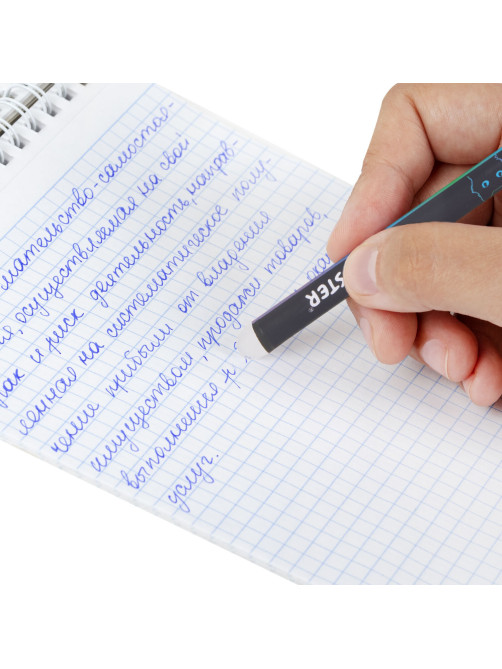 мательство-самостоя-
я, осуществляемая на свой
рах и риск деятельность, направ-
ленная на систематическое полу-
чение прибыли от владения
имуществом, продажи товаров,
выполнения
услуг.
STER®